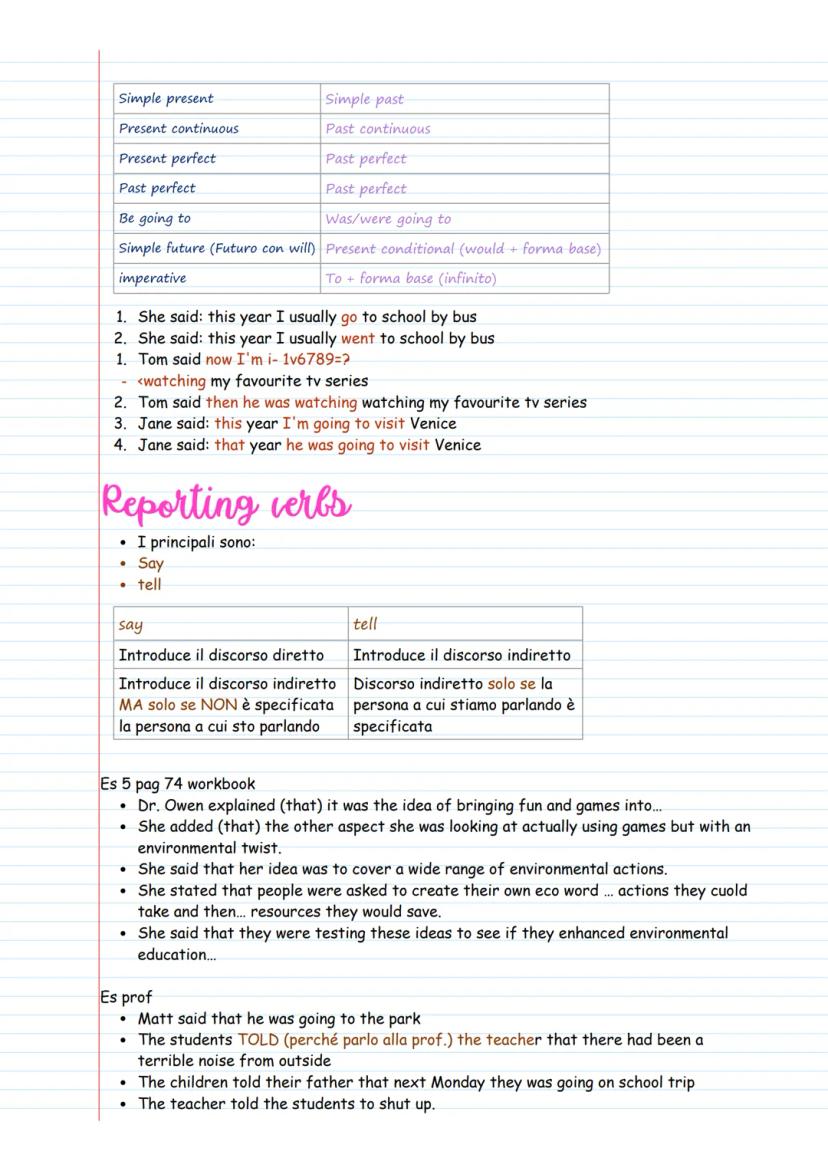 Simple present Simple past
Present continuous Past continuous
Present perfect Past perfect
Past perfect Past perfect
Be going to Was/were going to
Simple future (Futuro con will) Present conditional (would + forma base)
imperative To + forma base (infinito)
1. She said: this year I usually go to school by bus
2. She said: this year I usually went to school by bus
1. Tom said now I'm i- 1v6789=?
- <watching my favourite tv series
2. Tom said then he was watching watching my favourite tv series
3. Jane said: this year I'm going to visit Venice
4. Jane said: that year he was going to visit Venice
Reporting verbs
• I principali sono:
• Say
• tell
say tell
Introduce il discorso diretto Introduce il discorso indiretto
Introduce il discorso indiretto Discorso indiretto solo se la
MA solo se NON è specificata persona a cui stiamo parlando è
la persona a cui sto parlando specificata
Es 5 pag 74 workbook
• Dr. Owen explained (that) it was the idea of bringing fun and games into...
• She added (that) the other aspect she was looking at actually using games but with an
environmental twist.
• She said that her idea was to cover a wide range of environmental actions.
• She stated that people were asked to create their own eco word ... actions they cuold
take and then... resources they would save.
• She said that they were testing these ideas to see if they enhanced environmental
education...
Es prof
• Matt said that he was going to the park
• The students TOLD (perché parlo alla prof.) the teacher that there had been a
terrible noise from outside
• The children told their father that next Monday they was going on school trip
• The teacher told the students to shut up.